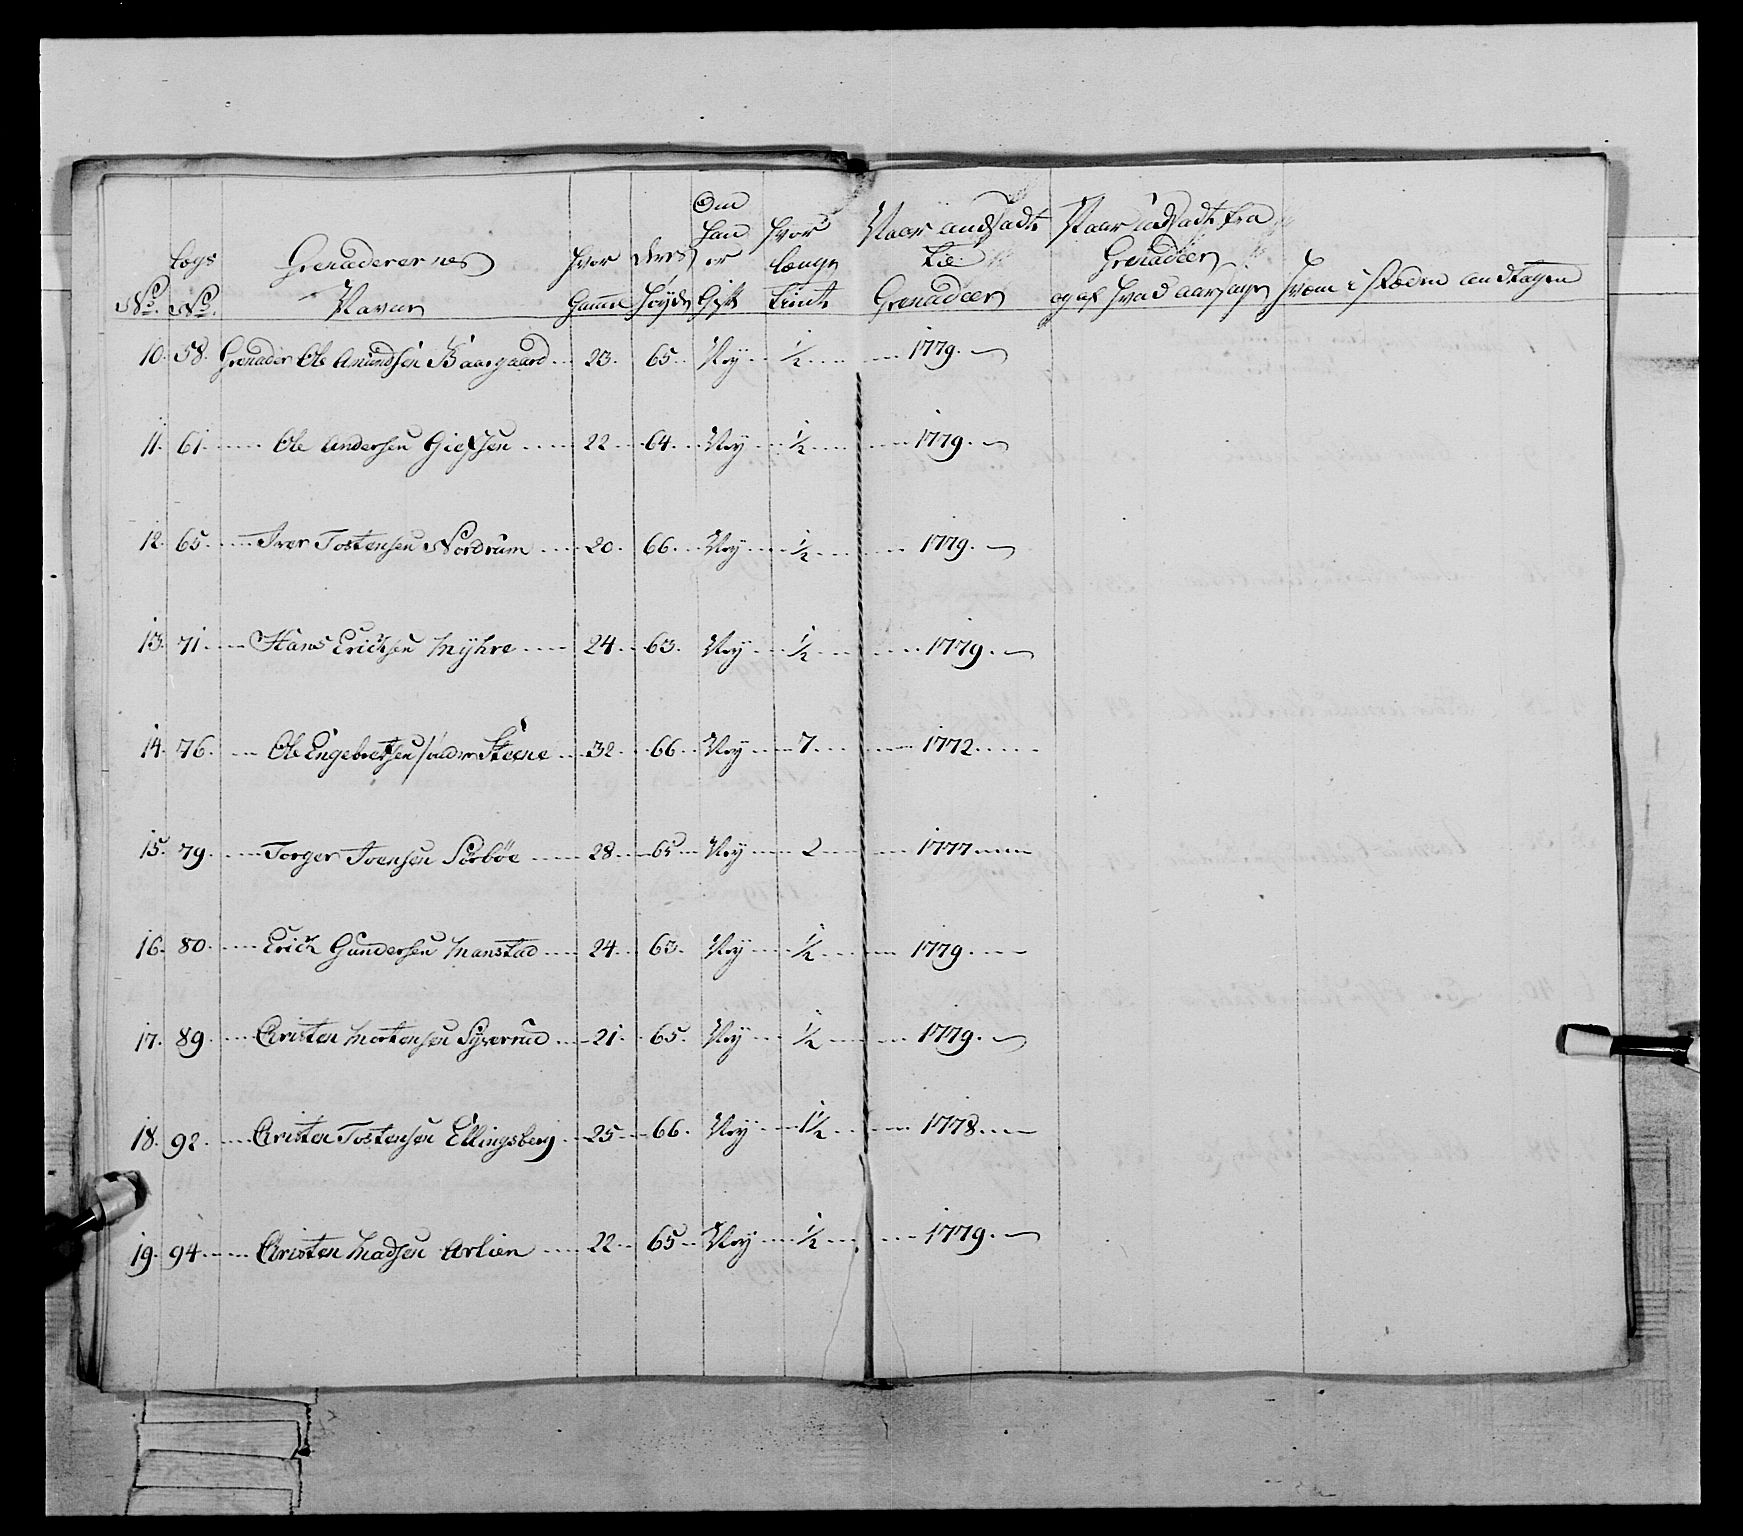 No. Lægs No. Grenaderernes Navne Hvor Gamle Deres Höyde Om Han er Gift Hvor længe tient Naar andsadt til Grenadeer Naar udsadt fra Grenadeer og af Hvad aarsage Hvem i stæden andtagen
10. 58. Grenader Ole Amundsen Baargaard 23. 65. Ney ½ 1779.
11. 61. Ole Andersen 22 64. Ney ½ 1779.
12. 65. Iver Tostensen Nordrum 20. 66. Ney ½ 1779.
13. 71. Hans Erichsen Myhre 24. 63. Ney ½ 1779.
14. 76. Ole Engebretsen Steene 32. 66. Ney 7 1772.
15. 79. Torger Joensen Sörböe 28. 65. Ney 2 1777
16. 80. Erich Gundersen Manstad 24. 63. Ney ½ 1779.
17. 89. Christen Mortensen Syverrud 21. 65. Ney ½ 1779.
18. 92. Christen Tostensen Ellingsberg 25 66. Ney 1½ 1778.
19. 94. Christen Madsen Arlien 22. 65. Ney ½ 1779.